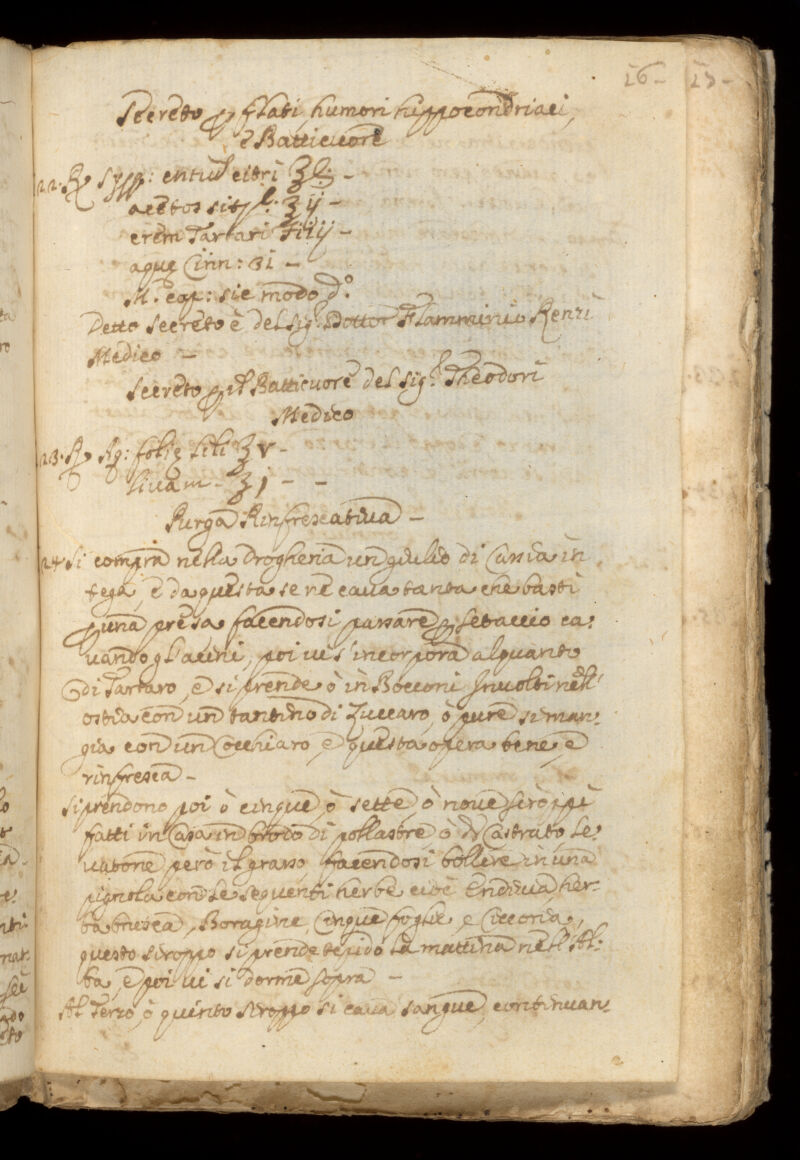 16- 15-
Secreto p flati, humori hippocondriaci,
e Batticuore
22. Rx syrp: citri ℥
acetos ℥ ij -
crem Tartari
aque Cinn: ʒi -
M. cap: sic modo d.º
Detto Secreto è del Sig. Dottor Flamminio Renzi
Medico -
Secreto p il Batticuore del Sig.r Theodori
Medico
23. Rx Aq: ℥ v -
℥ j - -
Purga Rinfrescativa -
24 Si compra nella Drogheria un giulio di Cassia in
tega, e da questa se ne cava tanta che basti
p una presa facendosi passare p setaccio ca:
vando gl'acini, poi vi s'incorpora alquanto
di Tartaro, e si prende ò in Bocconi Involti nell'
ostia con un tantino di Zuccaro, ò pure si man:
gia con un Cocchiaro, e questa opera bene, e
rinfresca -
si prendono poi ò cinque, ò sette, ò nove siroppi
fatti in Casa in brodo di pollastre ò di Castrato, le:
vatone però il grasso, facendosi bollire in una
pignola con le seguenti herbe cioè Endivia, her:
ba brusca, Boragine, Cinque foglie, e Ciccoria,
questo siroppo si prende tepido la mattina nell'Al:
ba, e poi vi si dorme sopra -
Al Terzo, ò quinto siroppo si cava sangue, continuan: